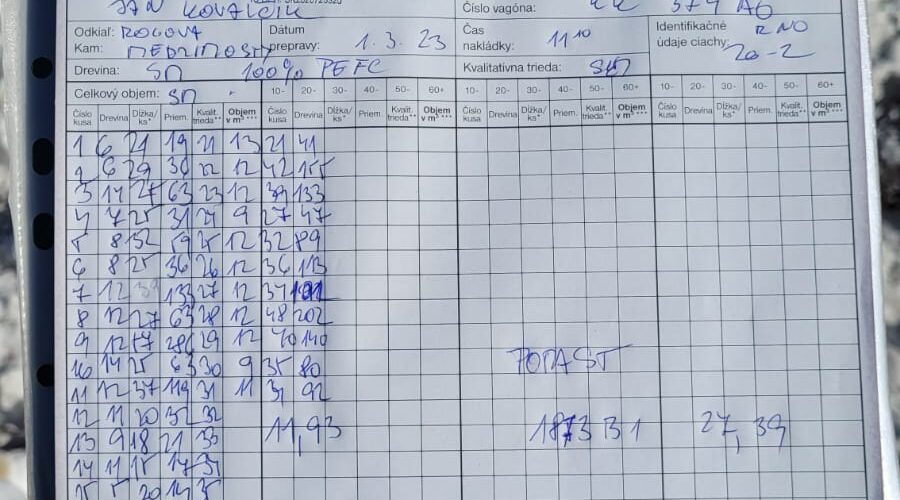 JÁN KOVALČIK
Číslo vagóna: 374 AG
Odkiaľ: ROGOVA
Dátum prepravy: 1.3.23
Čas nakládky: 11 10
Identifikačné údaje ciachy: RNO 20-2
Kam: MEDZIMOSTY
Drevina: SM 100% PEFC
Kvalitatívna trieda:
Celkový objem: SM
10- 20- 30- 40- 50- 60+ 10- 20- 30- 40- 50- 60+ 10- 20- 30- 40- 50- 60+
Číslo kusa Drevina Dĺžka/ks* Priem. Kvalit. trieda** Objem v m³ *** Číslo kusa Drevina Dĺžka/ks* Priem. Kvalit. trieda** Objem v m³ *** Číslo kusa Drevina Dĺžka/ks* Priem. Kvalit. trieda** Objem v m³ *** Číslo kusa Drevina Dĺžka/ks* Priem. Kvalit. trieda** Objem v m³ ***
1 6 21 19 21 13 21 41
2 6 29 36 22 12 42 155
3 14 27 63 23 12 39 133
4 7 25 31 24 9 27 47
5 8 32 59 25 12 32 89
6 8 25 36 26 12 36 113
7 12 133 27 12 37
8 12 27 63 28 12 48 202
9 12 29 12 40 140
10 14 25 63 30 9 35 80
11 12 37 119 31 11 31 92
12 11 20 32 32
13 9 18 21 33
11,93 31 27,39
14 11 15 17 34
15 5 20 14 35